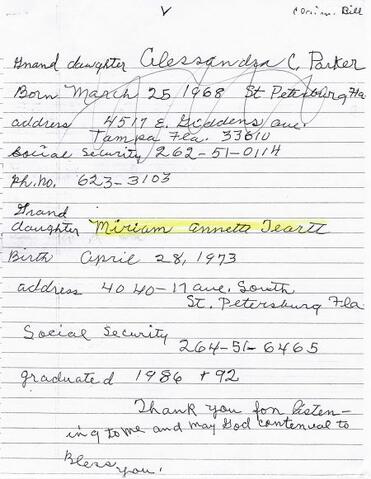 Claim. Bill
Grand daughter Alessandra C. Parker
Born March 25 1968 St Petersburg Fla
address 4517 E. Giddens ave.
Tampa Fla. 33610
Social Security 262-51-0114
Ph. no. 623-3103
Grand
daughter Miriam annette Teartt
Birth April 28, 1973
address 4040-17 ave. South
St. Petersburg Fla.
Social Security
264-51-6465
graduated 1986 + 92
Thank you fon listen-
ing to me and may God contenual to
Bless
you.